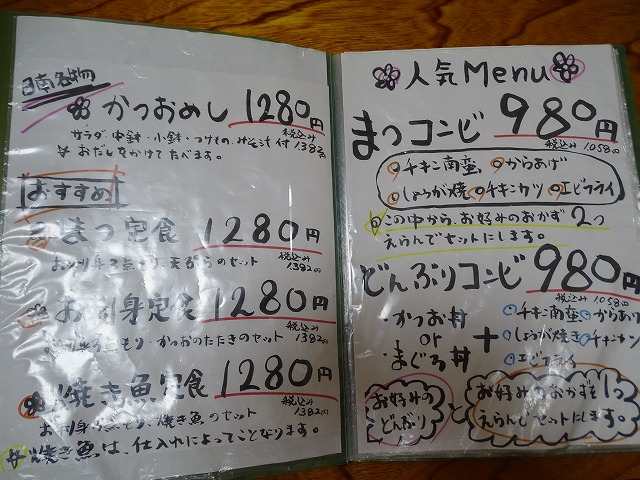 日南名物
かつおめし 1280円
税込み 1382円
サラダ・中鉢・小鉢・つけもの・みそ汁付
※おだしをかけてたべます。
おすすめ
まつ定食 1280円
お刺身3点もり、天ぷらのセット
税込み 1382円
お刺身定食 1280円
お刺身もり・かつおのたたきのセット
税込み 1382円
焼き魚定食 1280円
お刺身もり・焼き魚のセット
税込み 1382円
※焼き魚は、仕入れによってことなります。
人気Menu
まつコンビ 980円
税込み 1058円
チキン南蛮 からあげ
しょうが焼 チキンカツ エビフライ
この中から、お好みのおかず2つ
えらんでセットにします。
どんぶりコンビ 980円
税込み 1058円
・かつお丼
or
・まぐろ丼
+
チキン南蛮 からあげ
しょうが焼き チキンカツ
エビフライ
お好みの
どんぶり
と
お好みのおかずを1つ
えらんでセットにします。